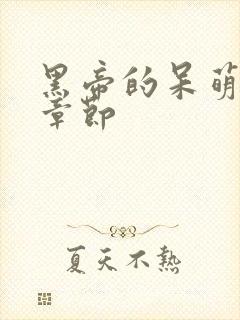 黑帝的呆萌
章節
夏天不熱